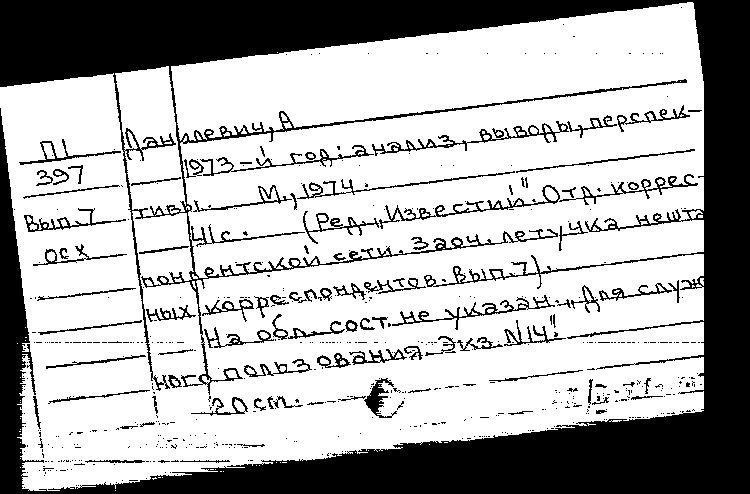 П1
397
Вып.7
осх
Данилевич, А
1973-й год: анализ, выводы, перспек-
тивы. М., 1974.
41с. (Ред. „Известий". Отд. коррес-
пондентской сети. Заоч. летучка нешта
ных корреспондентов. Вып. 7).
На обл. сост. не указан. „Для служ
ного пользования. Экз. N14".
20см.